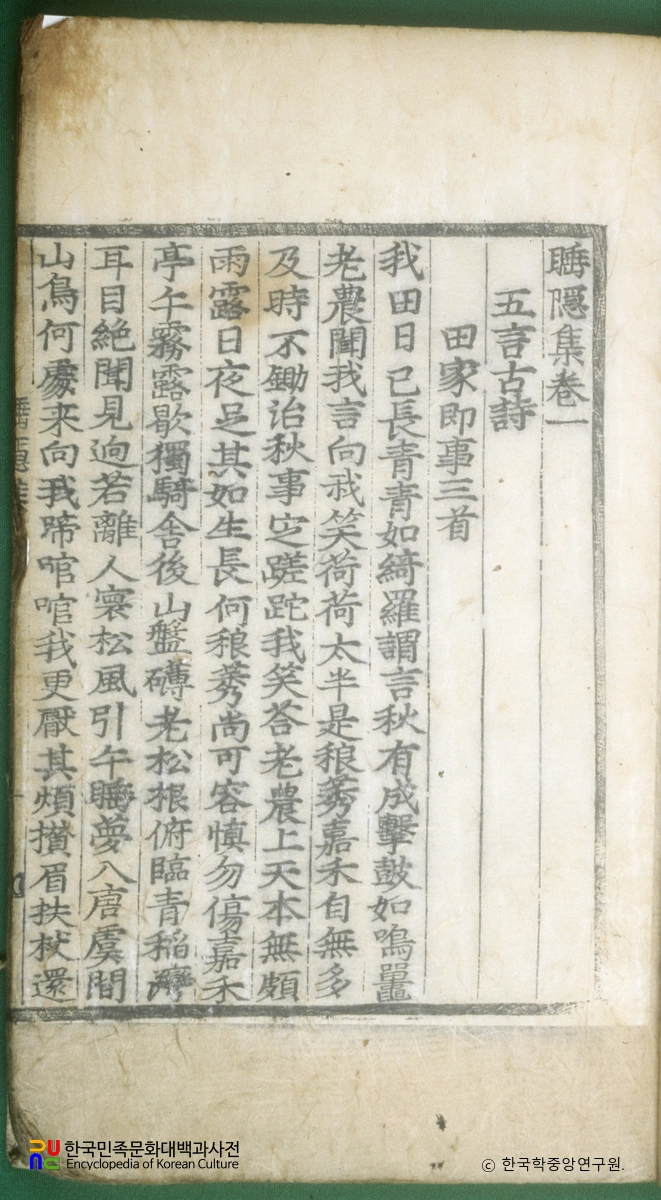 睡隱集卷一
五言古詩
田家即事三首
我田日已長青青如綺羅謂言秋有成擊鼓如鳴鼉
老農聞我言向我笑荷荷太半是稂莠嘉禾自無多
及時不鋤治秋事定蹉跎我笑答老農上天本無頗
雨露日夜足其如生長何稂莠尚可容愼勿傷嘉禾
亭午霧露歇獨騎舍後山盤礴老松根俯臨青稻灣
耳目絶聞見逈若離人寰松風引午睡夢入唐虞間
山鳥何處来向我啼喧喧我更厭其煩攅眉扶杖還
한국민족문화대백과사전
Encyclopedia of Korean Culture
© 한국학중앙연구원.